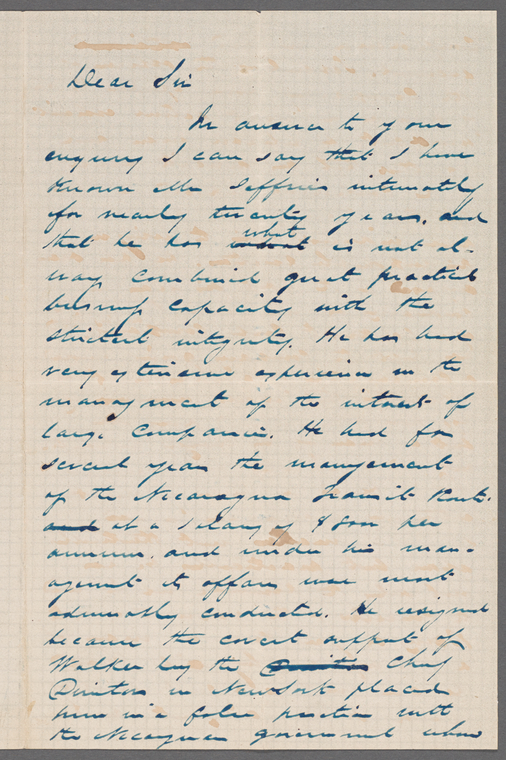 Dear Sir
In answer to your
enquiry I can say that I have
known Mr Jeffries intimately
for nearly twenty years, and
that he has what is not al-
ways combined great practical
business capacity with the
strictest integrity. He has had
very extensive experience in the
management of the interest of
large Companies. He had for
several years the management
of the Nicaragua Transit Route
and at a salary of $ per
annum. and under his man-
agement its affairs were most
admirably conducted. He resigned
because the covert support of
Walker by the Chief
Directors in New York placed
him in a false position with
the Nicaraguan government whom